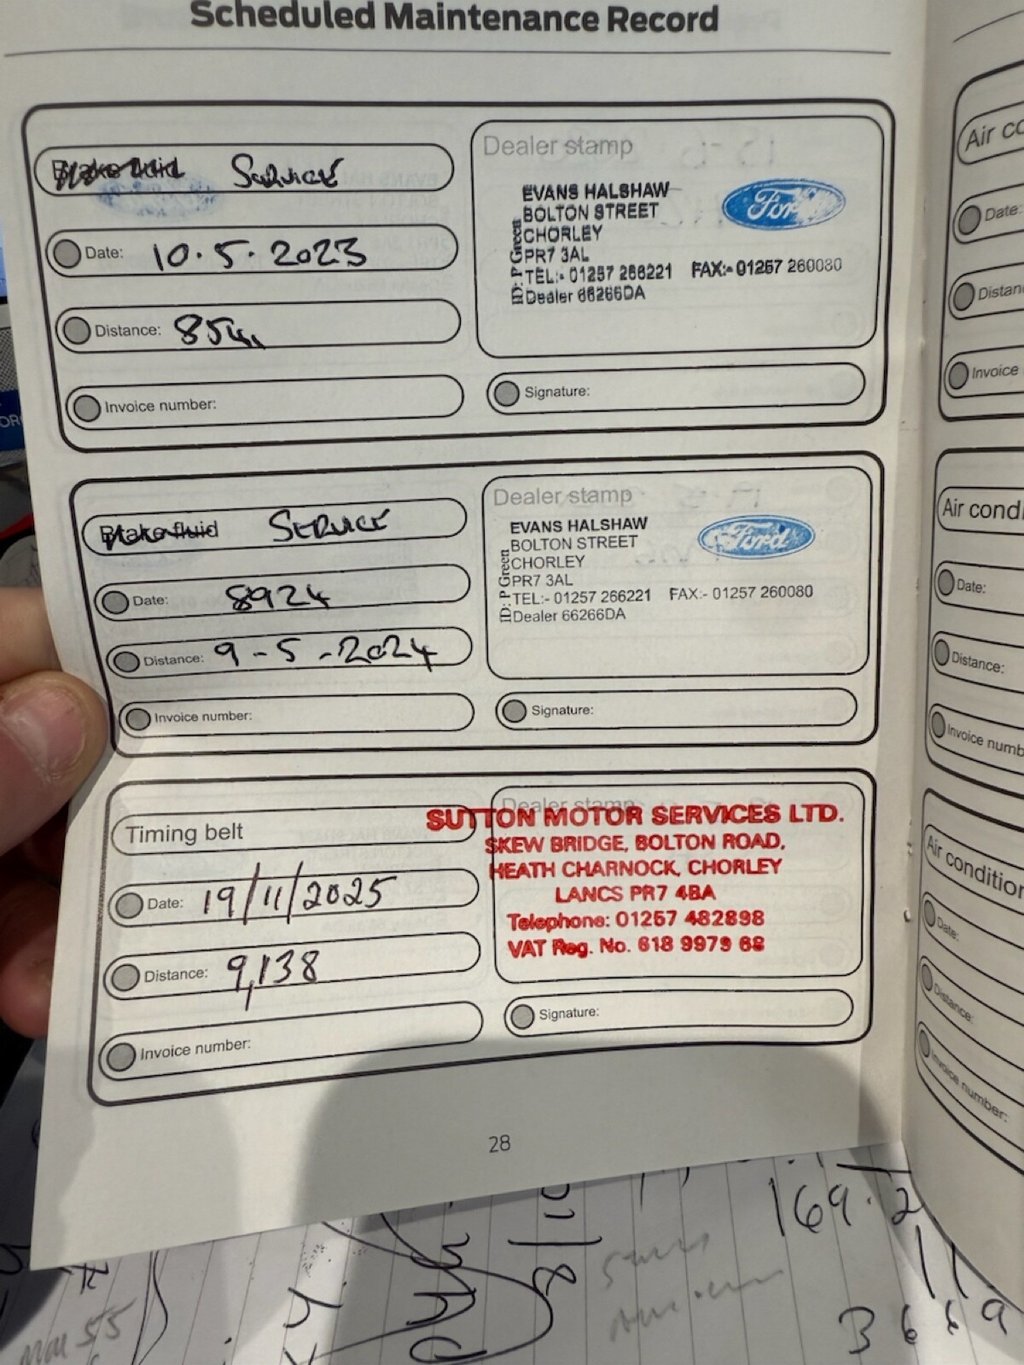 Scheduled Maintenance Record
Brake fluid SERVICE
Date: 10.5.2023
Distance:
Invoice number:
Dealer stamp
EVANS HALSHAW
BOLTON STREET
CHORLEY
PR7 3AL
TEL:- 01257 266221 FAX:- 01257 260080
Dealer 66266DA
ID: P Green
Ford
Signature:
Brake fluid SERVICE
Date: 8924
Distance: 9-5-2024
Invoice number:
Dealer stamp
EVANS HALSHAW
BOLTON STREET
CHORLEY
PR7 3AL
TEL:- 01257 266221 FAX:- 01257 260080
Dealer 66266DA
ID: P Green
Ford
Signature:
Timing belt
Date: 19/11/2025
Distance: 9,138
Invoice number:
Dealer stamp
SUTTON MOTOR SERVICES LTD.
SKEW BRIDGE, BOLTON ROAD,
HEATH CHARNOCK, CHORLEY
LANCS PR7 4BA
Telephone: 01257 482898
VAT Reg. No. 618 9979 68
Signature:
28
Air co
Date:
Distan
Invoice
Air condi
Date:
Distance:
Invoice numb
Air condition
Date:
Distance:
Invoice number:
169.2
11